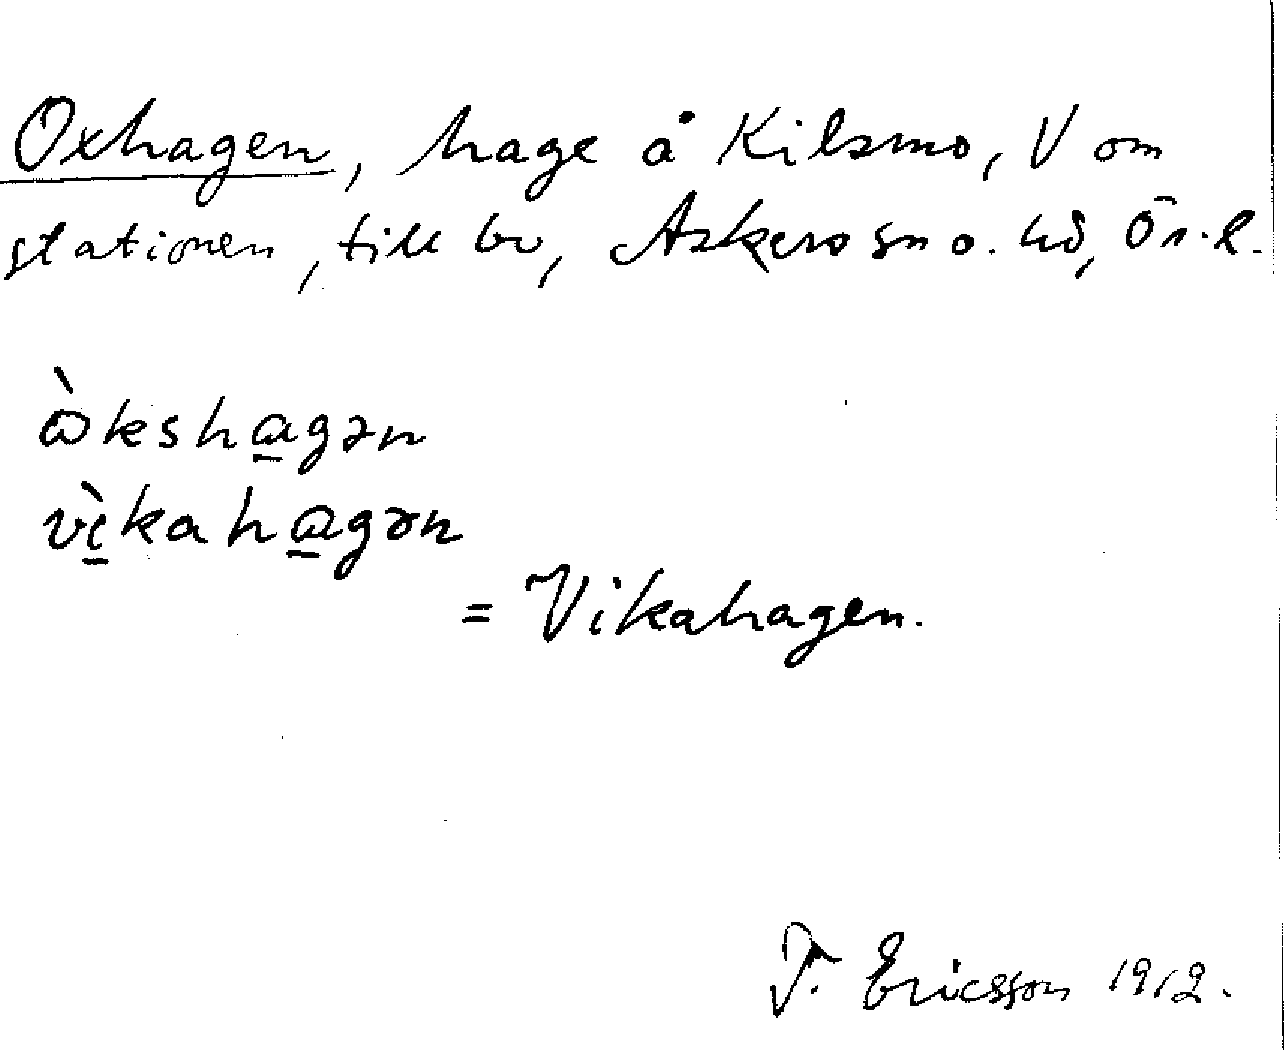 Oxhagen, hage å Kilsmo, V om
stationen, till bv, Askers sn o. hd, Ör. l.
ɷ̀kshɑ̲gən
vì̲kahɑ̲gən
= Vikahagen.
Ericsson 1912.